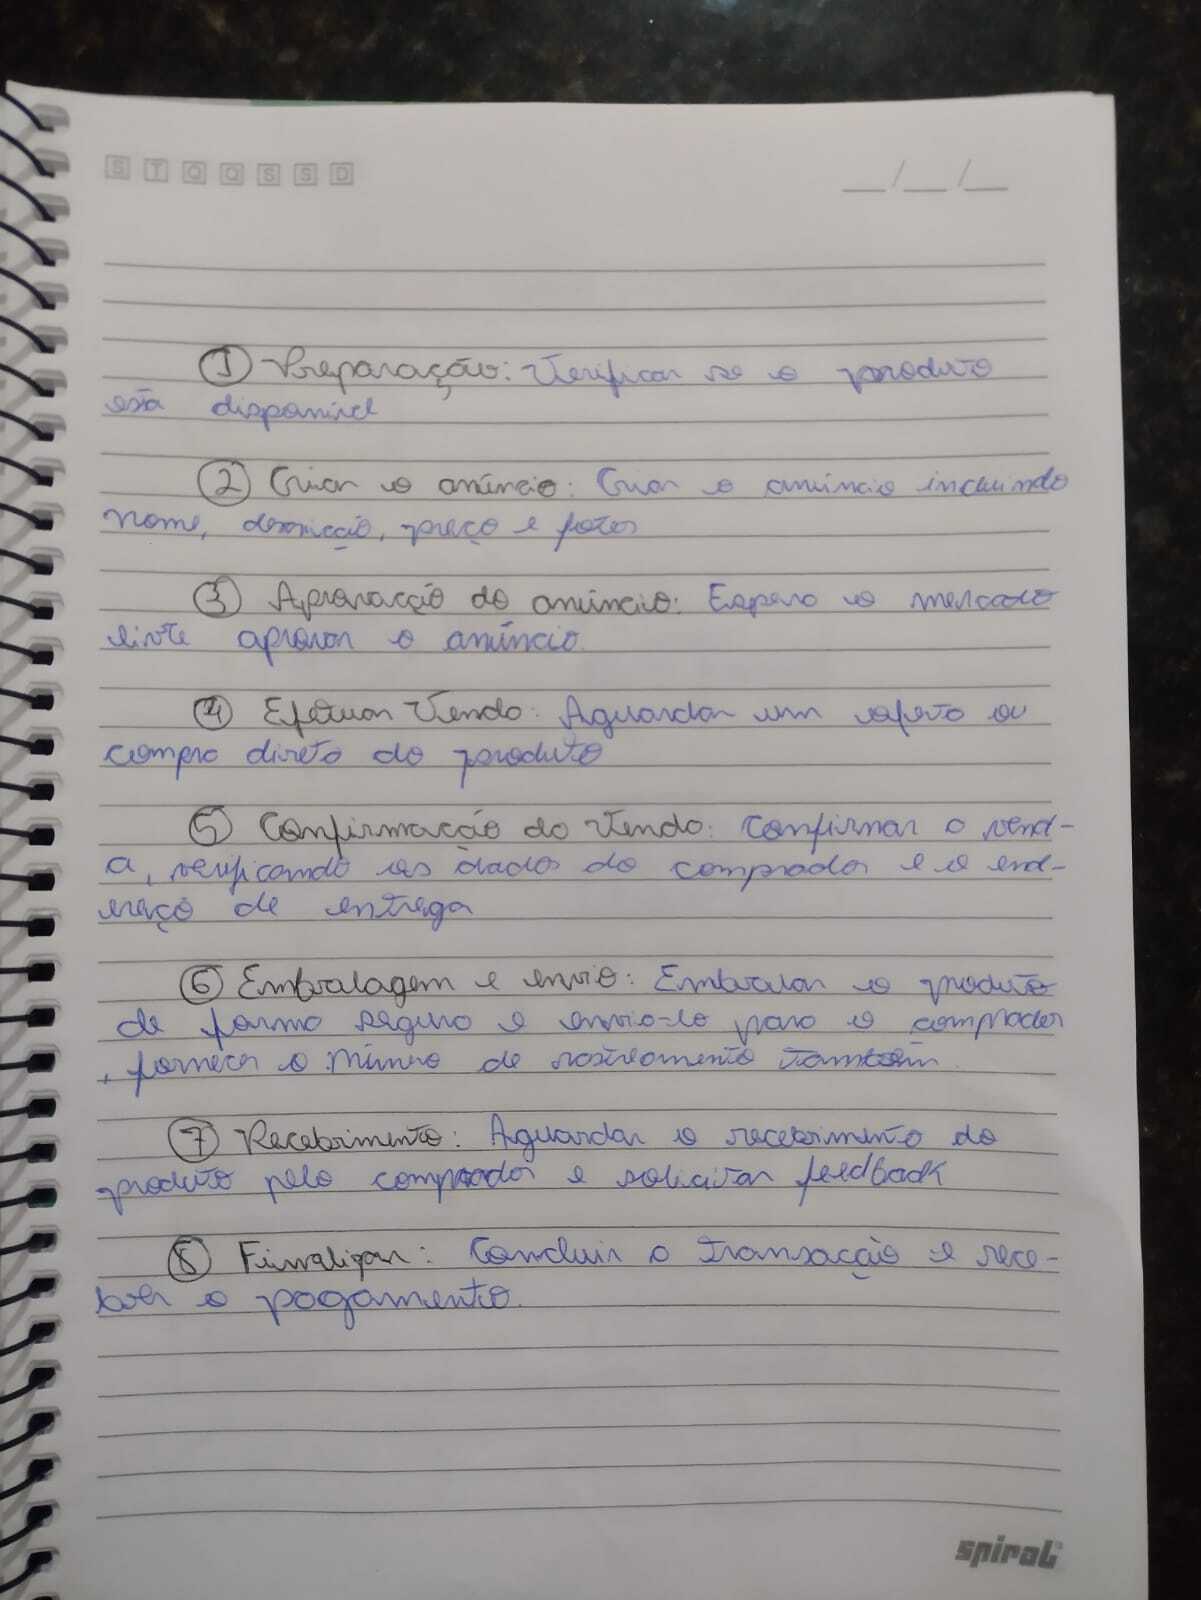 S T Q Q S S D __/__/__
① Preparação: Verificar se o produto
está disponível
② Criar o anúncio: Criar o anúncio incluindo
nome, descrição, preço e fotos
③ Aprovação do anúncio: Espera o mercado
livre aprovar o anúncio.
④ Efetuar Venda: Aguardar um oferta ou
compra direta do produto
⑤ Confirmação da Venda: Confirmar a vend-
a, verificando os dados do comprador e o end-
ereço de entrega
⑥ Embalagem e envio: Embalar o produto
de forma segura e envia-lo para o comprador
, fornecer o número de rastreamento também.
⑦ Recebimento: Aguardar o recebimento do
produto pelo comprador e solicitar feedback
⑧ Finalizar: Concluir a transação e rece-
ber o pagamento.
spiral